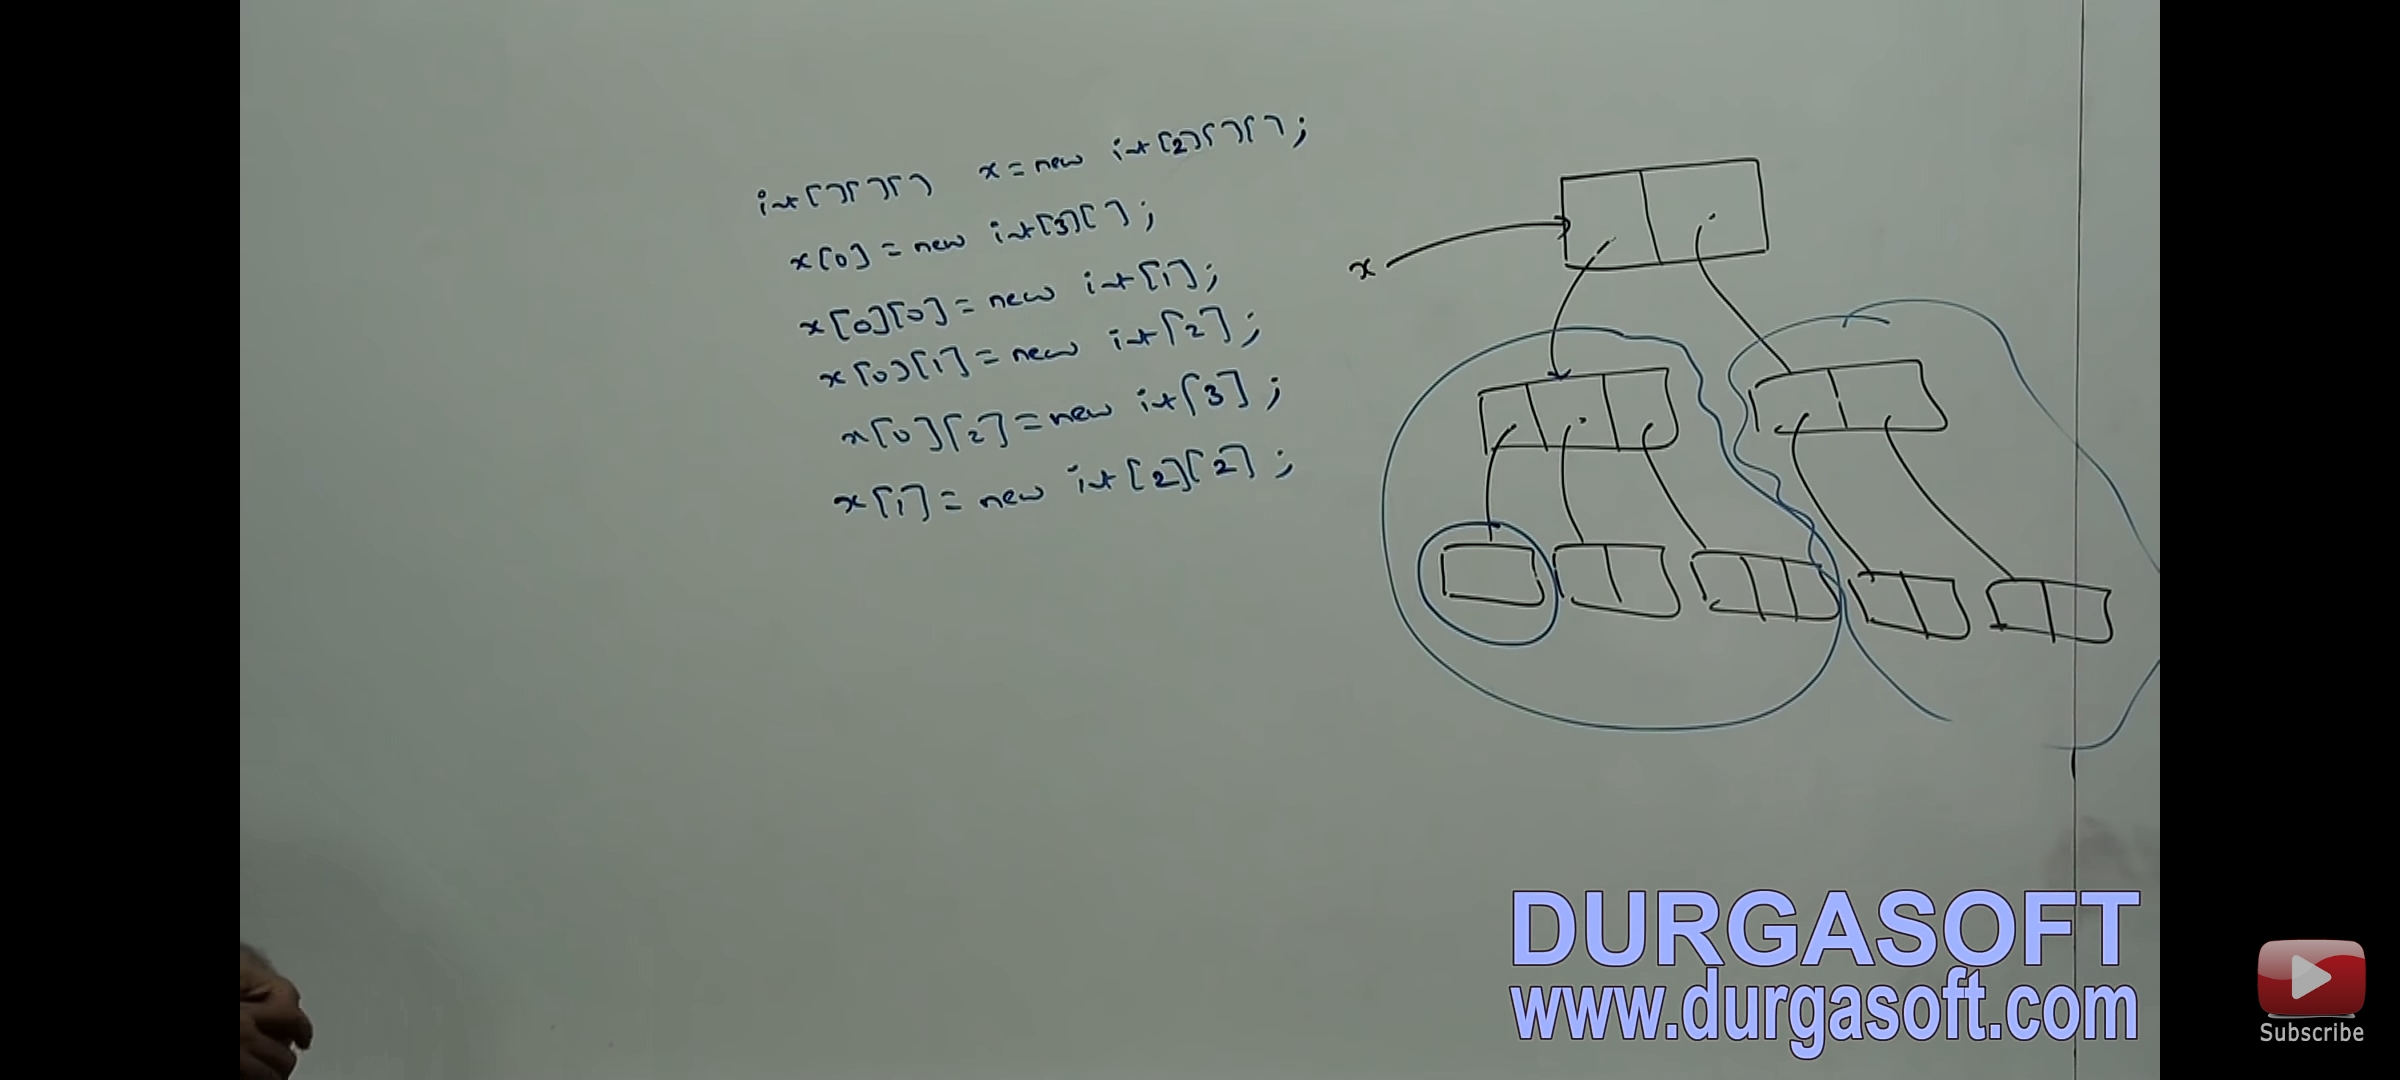 int[][][] x = new int[2][][];
x[0] = new int[3][];
x[0][0] = new int[1];
x[0][1] = new int[2];
x[0][2] = new int[3];
x[1] = new int[2][2];
x
DURGASOFT
www.durgasoft.com
Subscribe